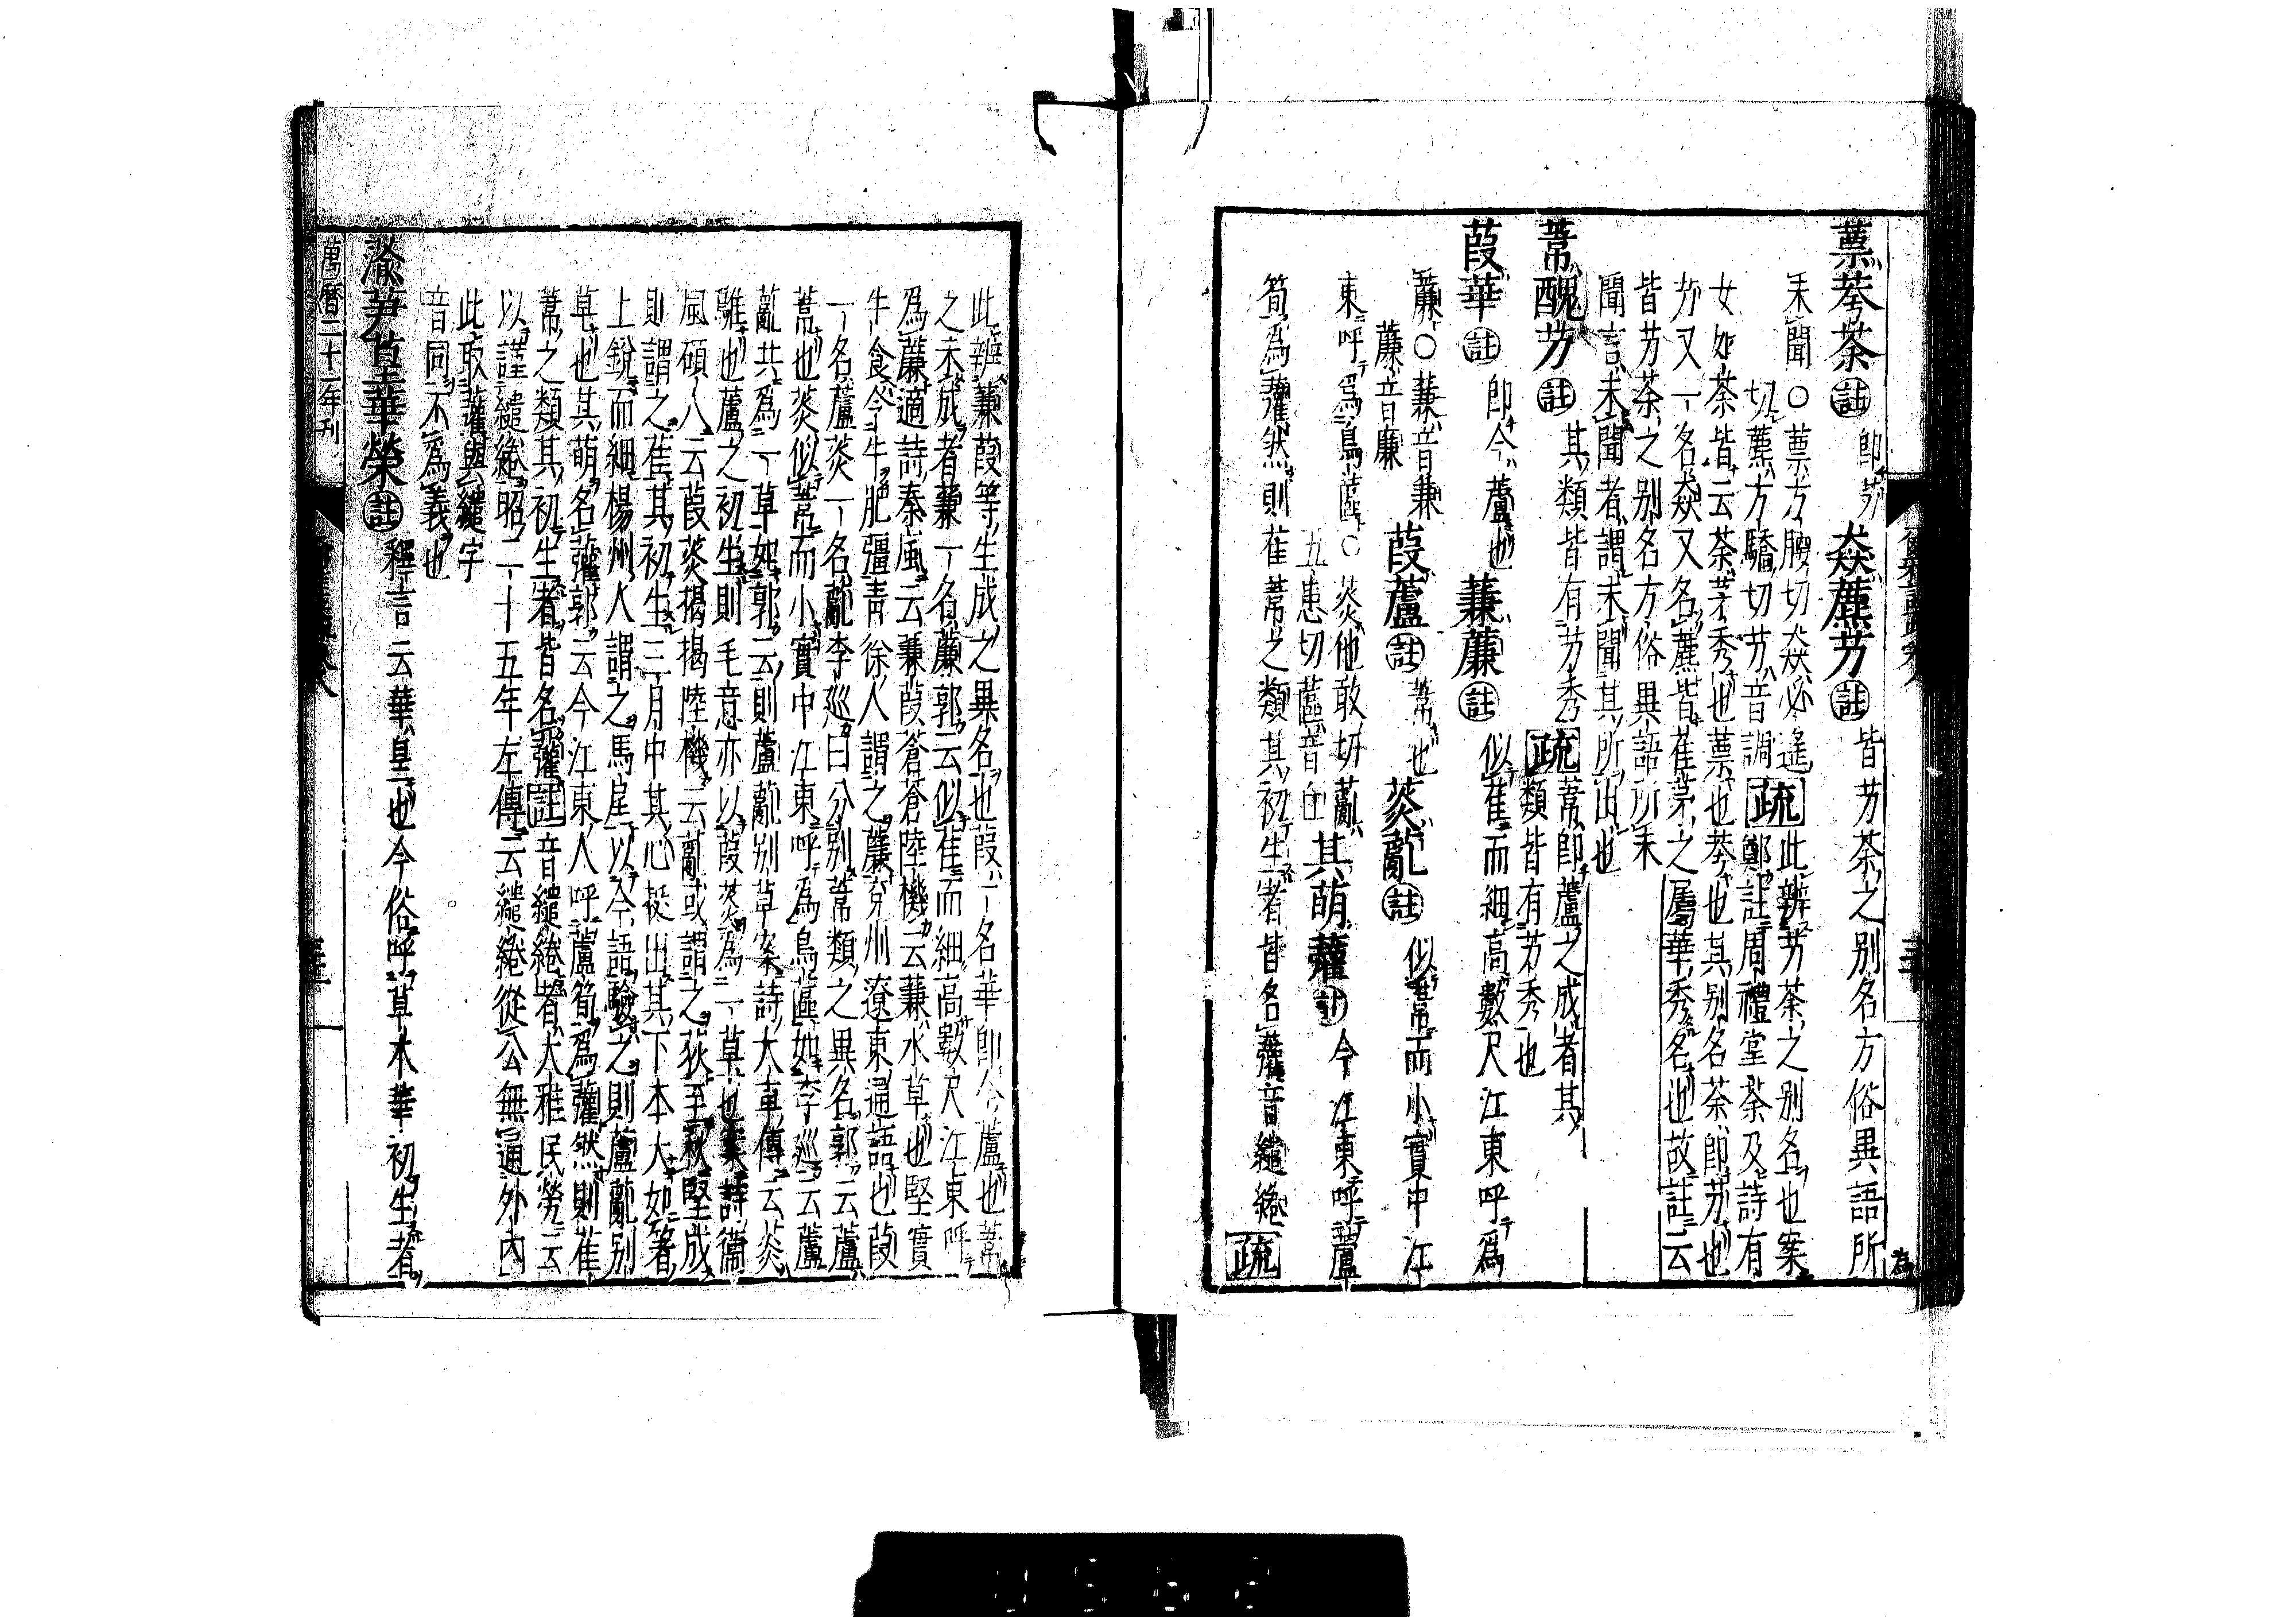 蔈荂荼 註 即艻 猋藨艻 註 皆艻荼之别名方俗異語所
未聞○蔈方腰切猋必遙
切藨方驕切艻音調 疏 此辨艻荼之别名也案
鄭註周禮掌荼及詩有
女如荼皆云荼茅秀也蔈也荂也其别名荼即艻也
艻又一名猋又名藨皆萑茅之屬華秀名也故註云
皆艻荼之别名方俗異語所未
聞言未聞者謂未聞其所出也
葦醜艻 註 其類皆有艻秀 疏 葦即蘆之成者其
類皆有艻秀也
葭華 註 即今蘆也 蒹薕 註 似萑而細高數尺江東呼爲
薕○蒹音兼
薕音廉 葭蘆 註 葦也 菼薍 註 似葦而小實中江
東呼爲烏蓲○菼他敢切薍
五患切蓲音丘 其萌虇 註 今江東呼蘆
筍爲虇然則萑葦之類其初生者皆名虇音繾綣 疏
此辨蒹葭等生成之異名也葭一名華即今蘆也葦
之未成者蒹一名薕郭云似萑而細高數尺江東呼
爲薕適詩秦風云蒹葭蒼蒼陸機云蒹水草也堅實
牛食令牛肥彊青徐人謂之薕兗州遼東通語也葭
一名蘆菼一名薍李巡曰分别葦類之異名郭云蘆
葦也菼似葦而小實中江東呼爲烏蓲如李巡云蘆
薍共爲一草如郭云則蘆薍别草案詩大車傳云菼
騅也蘆之初生則毛意亦以葭菼爲一草也案詩衛
風碩人云葭菼揭揭陸機云薍或謂之荻至秋堅成
則謂之萑其初生三月中其心挺出其下本大如箸
上銳而細楊州人謂之馬尾以今語驗之則蘆薍别
草也其萌名虇郭云今江東人呼蘆筍爲虇然則萑
葦之類其初生者皆名虇 註 音繾綣者大雅民勞云
以謹繾綣昭二十五年左傳云繾綣從公無通外內
此取虇與繾字
音同不爲義也
蕍芛葟華榮 註 釋言云華皇也今俗呼草木華初生者
萬曆二十一年刊